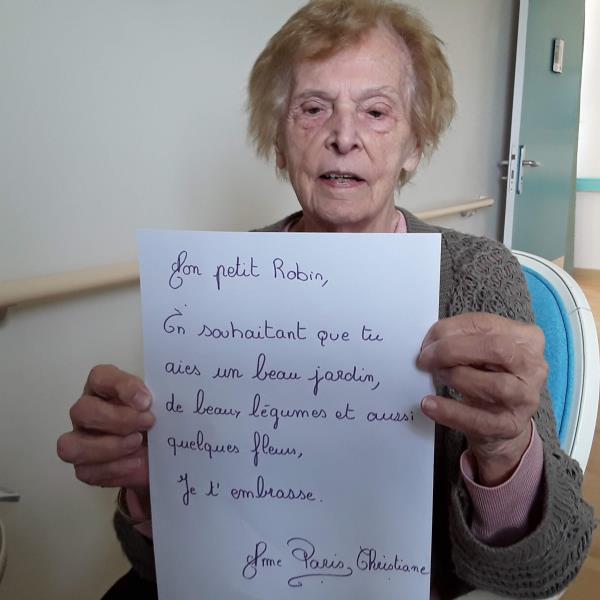 Mon petit Robin,
En souhaitant que tu
aies un beau jardin,
de beaux légumes et aussi
quelques fleurs,
Je t' embrasse.
Mme Paris, Christiane